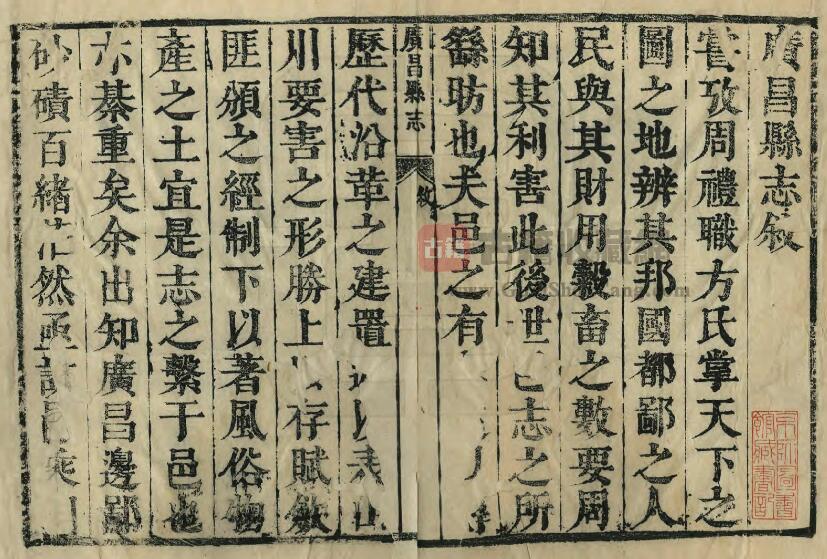 廣昌縣志敘
嘗攷周禮職方氏掌天下之
圖之地辨其邦國都鄙之人
民與其財用穀畜之數要周
知其利害此後世邑志之所
繇昉也夫邑之有
廣昌縣志 敘
歷代沿革之建置 以表山
川要害之形勝上以存賦斂
匪頒之經制下以著風俗物
產之土宜是志之繫于邑也
亦綦重矣余出知廣昌邊鄙
砂磧百緒茫然亟討邑乘
古籍